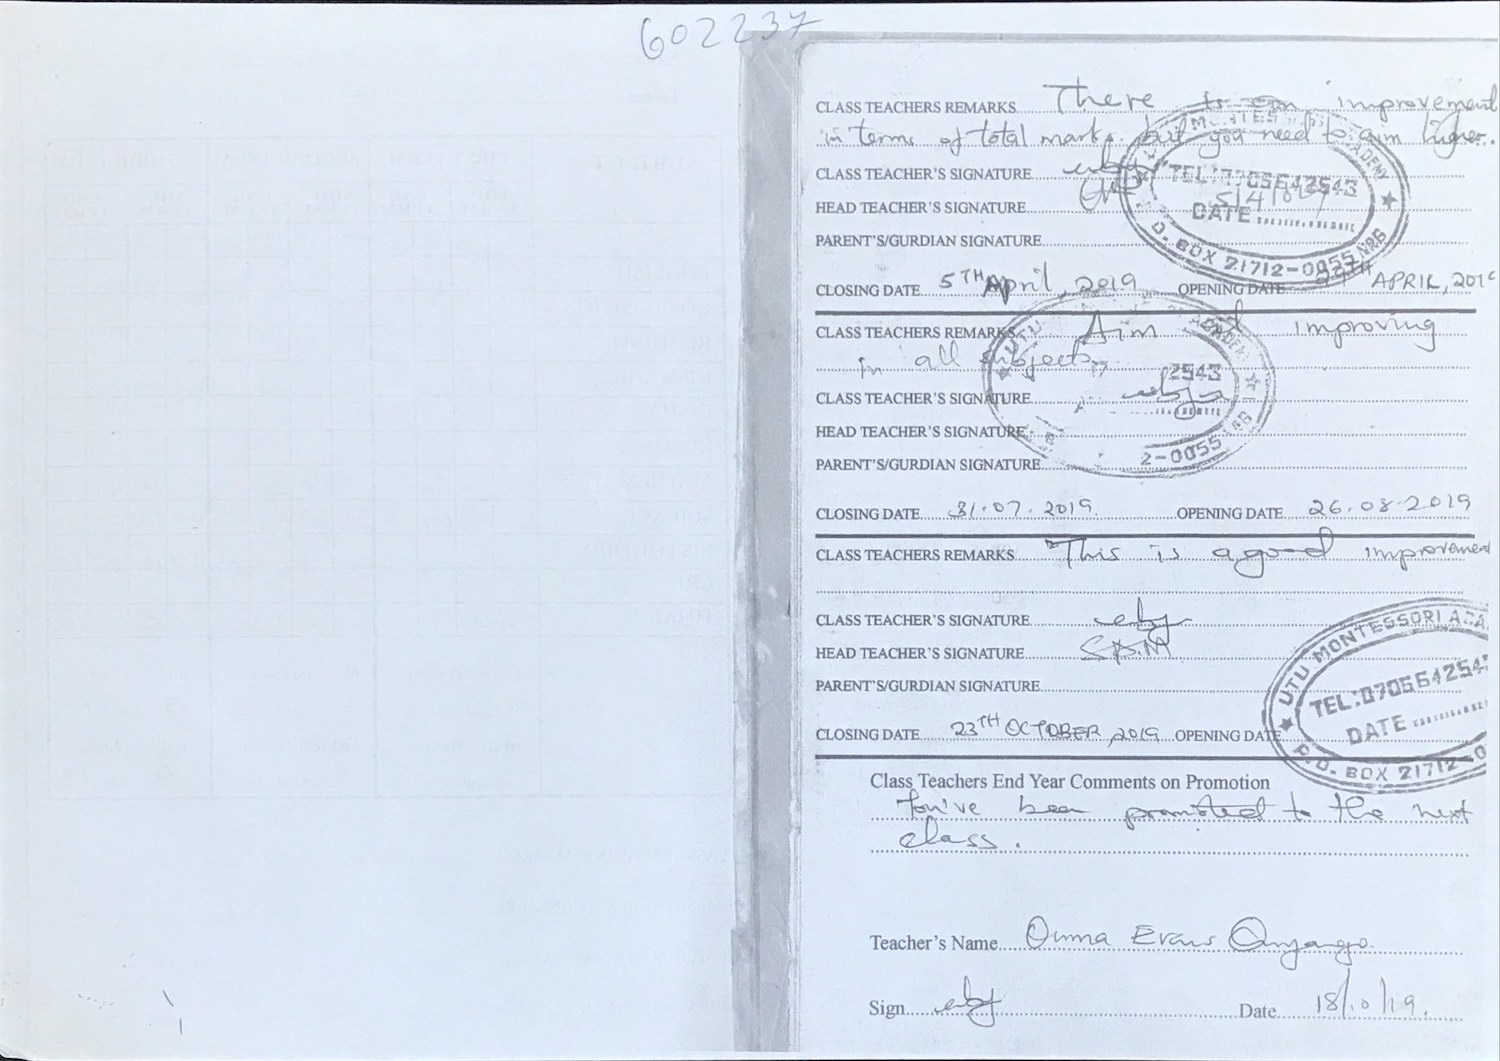 602237
CLASS TEACHERS REMARKS There is an improvement
in terms of total marks but you need to aim higher.
CLASS TEACHER'S SIGNATURE
HEAD TEACHER'S SIGNATURE
PARENT'S/GURDIAN SIGNATURE
TEL:0705642543
DATE 5/4/
P.O. BOX 21712-0055 NRB
CLOSING DATE 5TH April, 2019 OPENING DATE APRIL, 201
CLASS TEACHERS REMARKS Aim at improving
in all subjects
UTU ACADEMY
2543
2-0055
CLASS TEACHER'S SIGNATURE
HEAD TEACHER'S SIGNATURE
PARENT'S/GURDIAN SIGNATURE
CLOSING DATE 31.07.2019. OPENING DATE 26.08.2019
CLASS TEACHERS REMARKS This is a good improvement
CLASS TEACHER'S SIGNATURE
HEAD TEACHER'S SIGNATURE
PARENT'S/GURDIAN SIGNATURE
UTU MONTESSORI ACA
TEL:070564254
DATE
P.O. BOX 21712-0
CLOSING DATE 23TH OCTOBER, 2019 OPENING DATE
Class Teachers End Year Comments on Promotion
You've been promoted to the next
class.
Teacher's Name Ouma Evans Onyango
Sign Date 18/10/19.